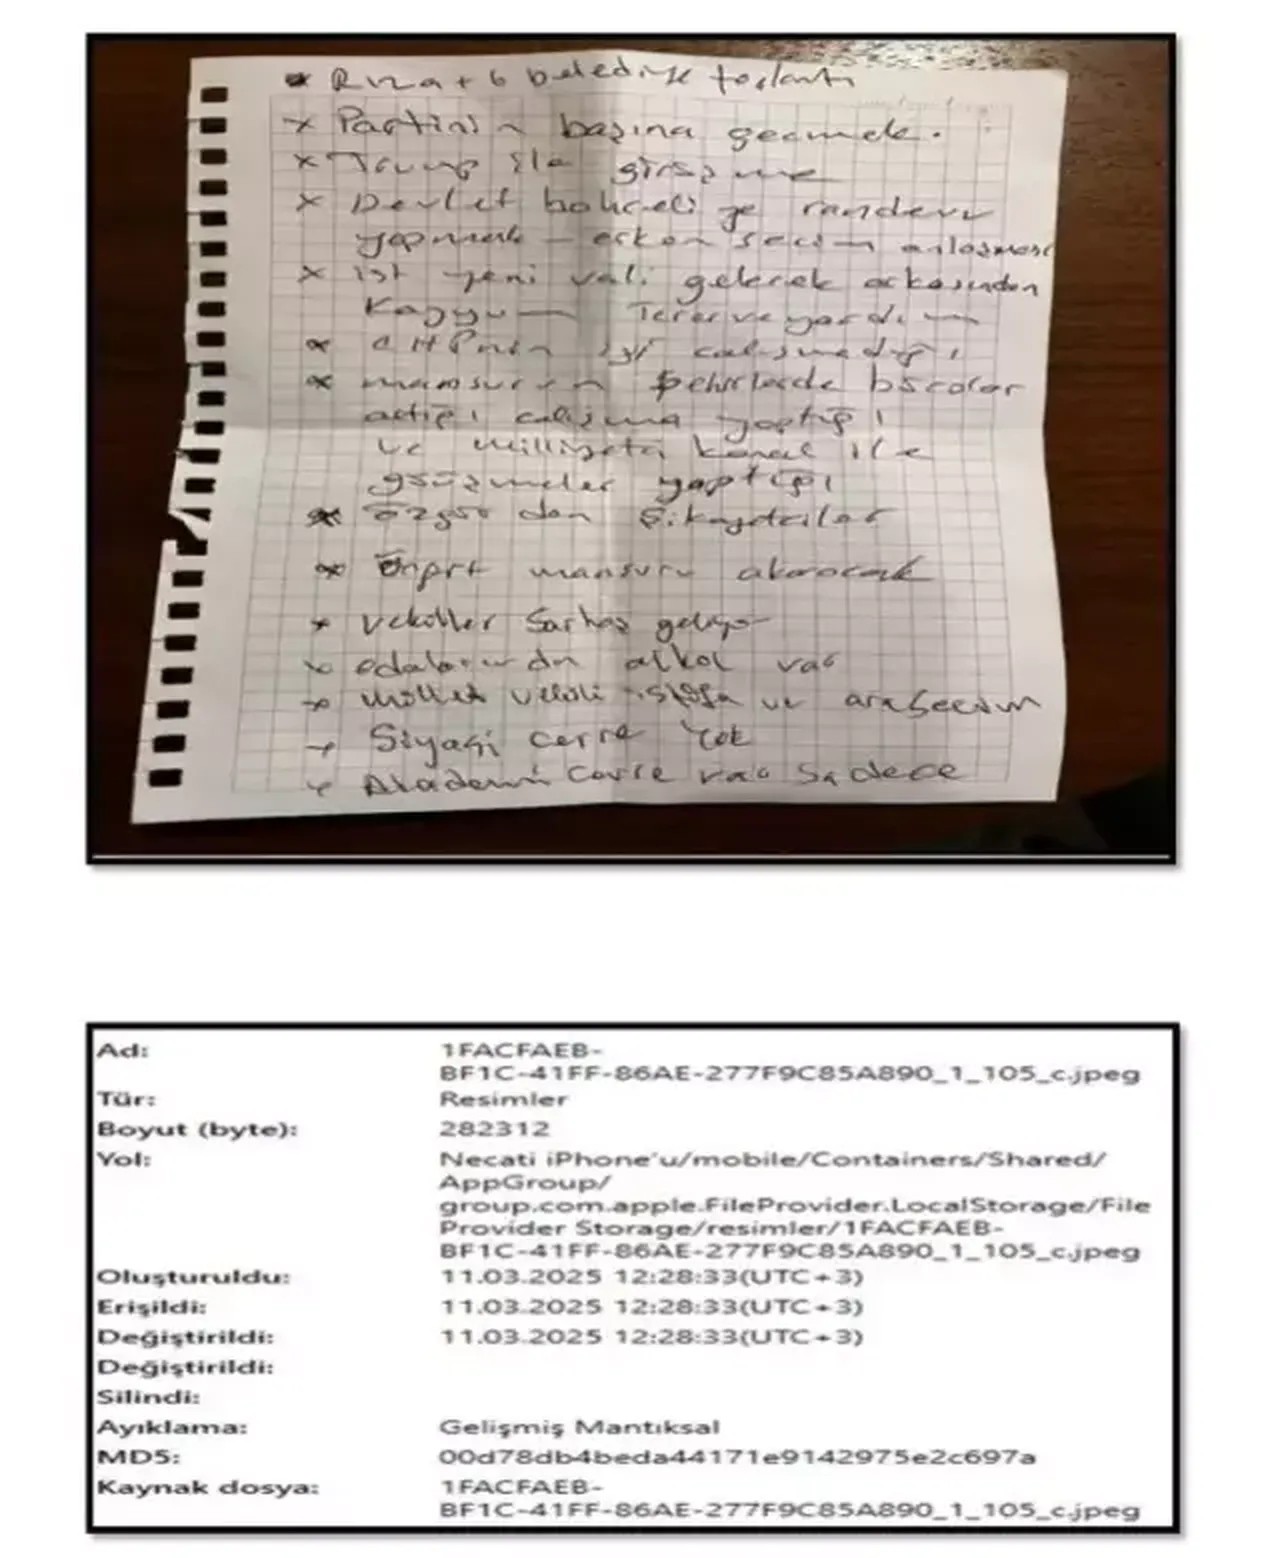 * Rıza + 6 belediye toplantı
x Partinin başına geçmek.
x Trump ile görüşme
x Devlet bahçeli ye randevu
yapmak - erken seçim anlaşması
x ist yeni vali gelecek arkasından
Kayyum Teröre yardım
x CHPnin iyi çalışmadığı
x mansurun şehirlerde bürolar
açtığı çalışma yaptığı
ve milliyetçi kanat ile
görüşmeler yaptığı
x özgür den şikayetciler
x mansuru
* vekiller Sarhoş geliyor
x odalarında alkol var
x millet vekili ve
x Siyasi çevre Yok
x Akademi çevre var Sadece
Ad: 1FACFAEB-
BF1C-41FF-86AE-277F9C85A890_1_105_c.jpeg
Tür: Resimler
Boyut (byte): 282312
Yol: Necati iPhone'u/mobile/Containers/Shared/
AppGroup/
group.com.apple.FileProvider.LocalStorage/File
Provider Storage/resimler/1FACFAEB-
BF1C-41FF-86AE-277F9C85A890_1_105_c.jpeg
Oluşturuldu: 11.03.2025 12:28:33(UTC+3)
Erişildi: 11.03.2025 12:28:33(UTC+3)
Değiştirildi: 11.03.2025 12:28:33(UTC+3)
Değiştirildi:
Silindi:
Ayıklama: Gelişmiş Mantıksal
MD5: 00d78db4beda44171e9142975e2c697a
Kaynak dosya: 1FACFAEB-
BF1C-41FF-86AE-277F9C85A890_1_105_c.jpeg